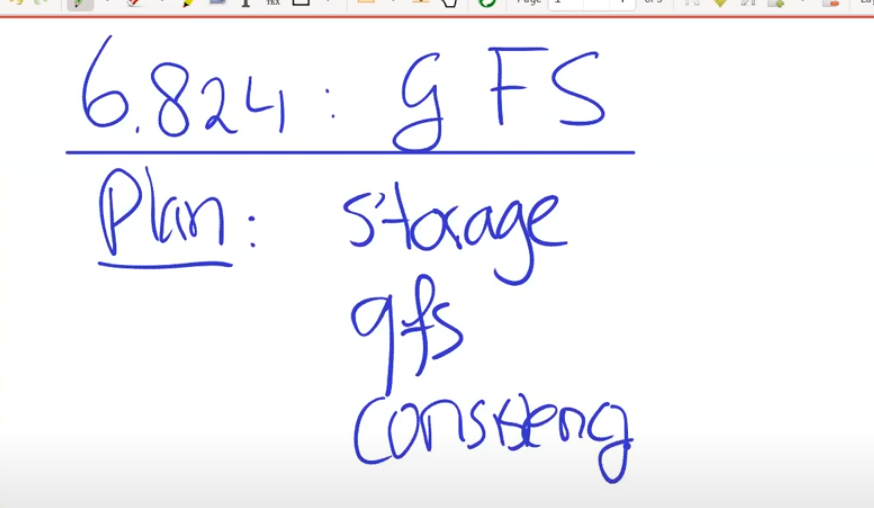 6.824: GFS
Plan: storage
gfs
consistency